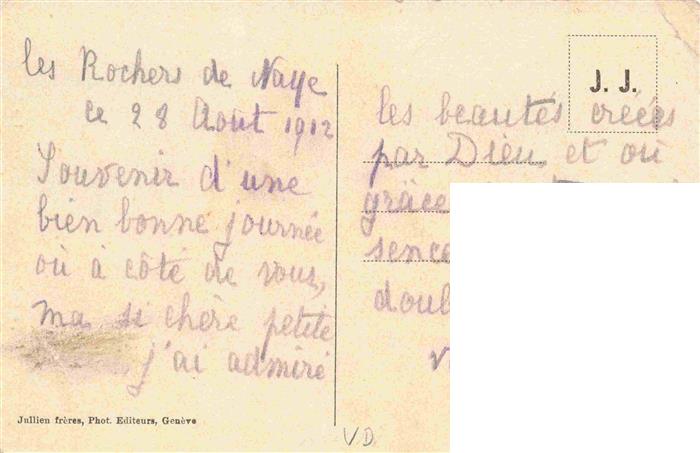 les Rochers de Naye
ce 28 Août 1912
Souvenir d'une
bien bonne journée
où à côté de vous,
ma si chère petite
j'ai admiré
Jullien frères, Phot. Editeurs, Genève
VD
J. J.
les beautés créées
par Dieu, et où
grâce